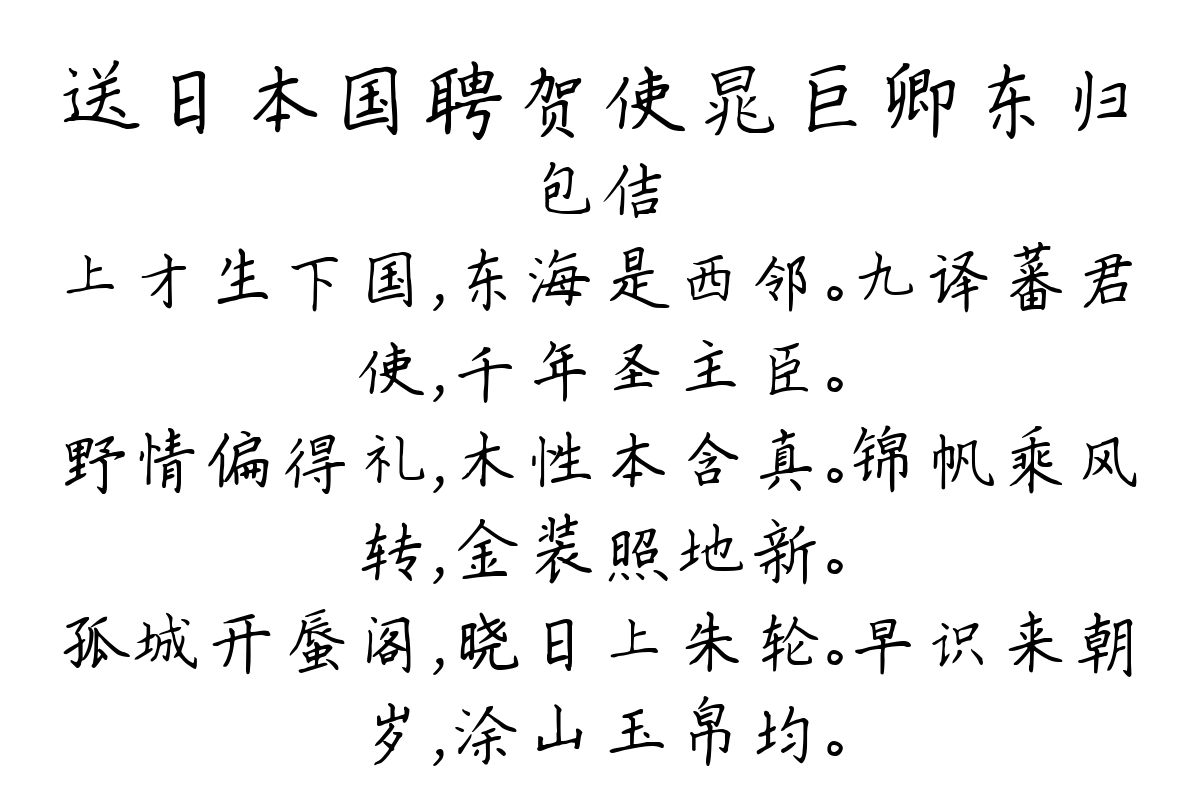 送日本国聘贺使晁巨卿东归
包佶
上才生下国,东海是西邻。九译蕃君
使,千年圣主臣。
野情偏得礼,木性本含真。锦帆乘风
转,金装照地新。
孤城开蜃阁,晓日上朱轮。早识来朝
岁,涂山玉帛均。